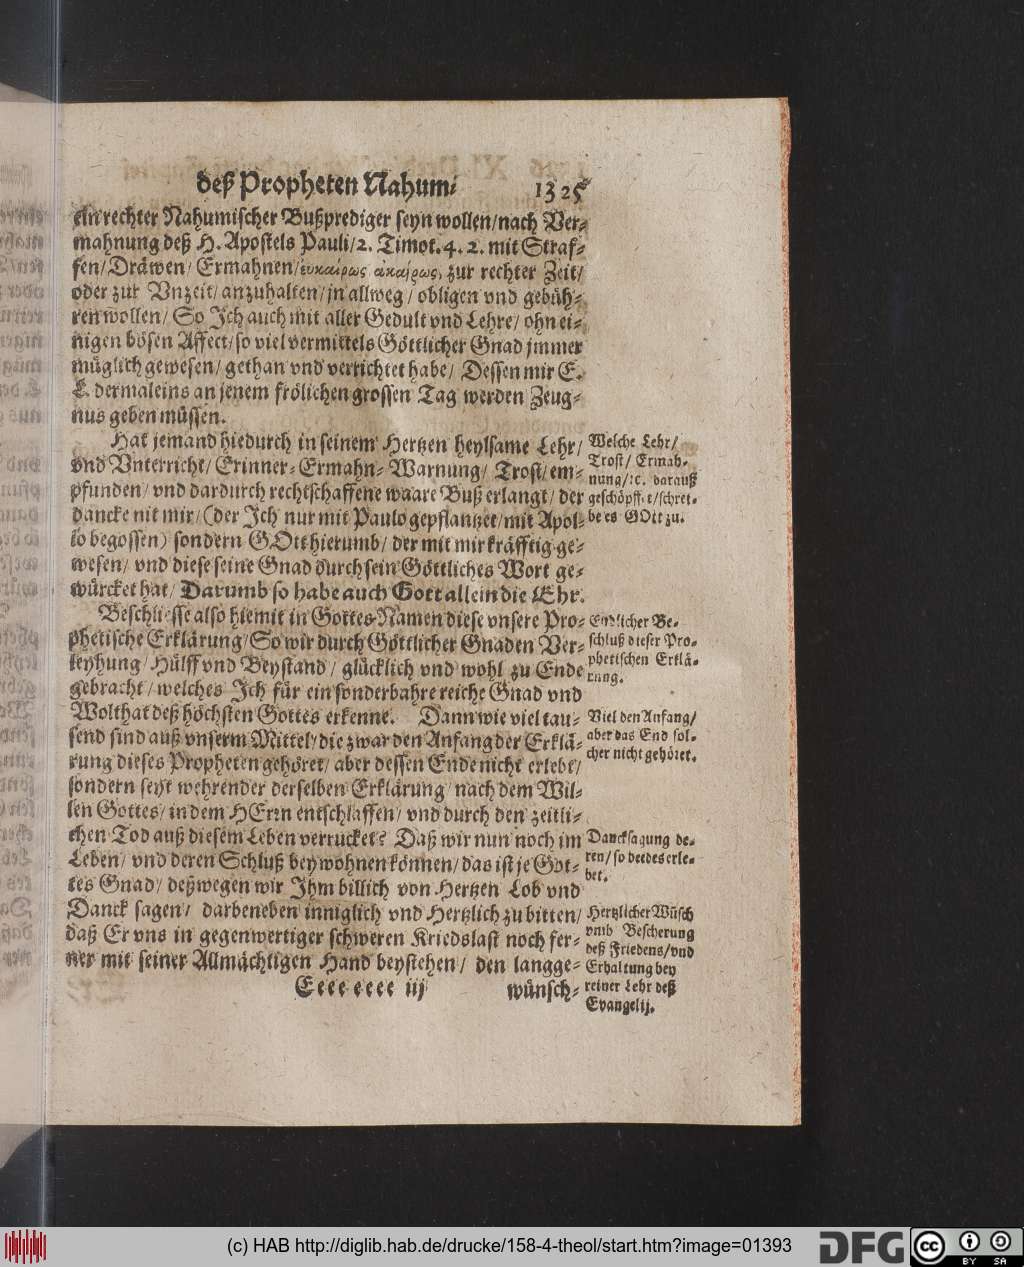 deß Propheten Nahum. 1325
ein rechter Nahumischer Bußprediger seyn wollen/ nach Ver-
mahnung deß H. Apostels Pauli/ 2. Timot. 4. 2. mit Straf-
fen/ Dräwen/ Ermahnen/ ευκαίρως ἀκαίρως, zur rechter Zeit/
oder zur Vnzeit/ anzuhalten/ jn allweg/ obligen vnd gebüh-
ren wollen/ So Ich auch mit aller Gedult vnd Lehre/ ohn ei-
nigen bösen Affect/ so viel vermittels Göttlicher Gnad jmmer
müglich gewesen/ gethan vnd verrichtet habe/ Dessen mir E.
L. dermaleins an jenem frölichen grossen Tag werden Zeug-
nus geben müssen.
Hat jemand hiedurch in seinem Hertzen heylsame Lehr/
vnd Vnterricht/ Erinner- Ermahn- Warnung/ Trost/ em-
pfunden/ vnd dardurch rechtschaffene waare Buß erlangt/ der
dancke nit mir/ (der Ich nur mit Paulo gepflantzet/ mit Apol-
lo begossen) sondern GOtt hierumb/ der mit mir kräfftig ge-
wesen/ vnd diese seine Gnad durch sein Göttliches Wort ge-
würcket hat/ Darumb so habe auch Gott allein die Ehr.
Welche Lehr/
Trost/ Ermah-
nung/ ꝛc. darauß
geschöpffet/ schrei-
be es GOtt zu.
Beschliesse also hiemit in Gottes Namen diese vnsere Pro-
phetische Erklärung/ So wir durch Göttlicher Gnaden Ver-
leyhung/ Hülff vnd Beystand/ glücklich vnd wohl zu Ende
gebracht/ welches Ich für ein sonderbahre reiche Gnad vnd
Wolthat deß höchsten Gottes erkenne. Dann wie viel tau-
send sind auß vnserm Mittel/ die zwar den Anfang der Erklä-
rung dieses Propheten gehöret/ aber dessen Ende nicht erlebt/
sondern seyt wehrender derselben Erklärung/ nach dem Wil-
len Gottes/ in dem HErrn entschlaffen/ vnd durch den zeitli-
chen Tod auß diesem Leben verrucket? Daß wir nun noch im
Leben/ vnd deren Schluß beywohnen können/ das ist je Got-
tes Gnad/ deßwegen wir Ihm billich von Hertzen Lob vnd
Danck sagen/ darbeneben inniglich vnd Hertzlich zu bitten/
daß Er vns in gegenwertiger schweren Kriegslast noch fer-
ner mit seiner Allmächtigen Hand beystehen/ den langge-
Endlicher Be-
schluß dieser Pro-
phetischen Erklä-
rung.
Viel den Anfang/
aber das End sol-
cher nicht gehöret.
Dancksagung de-
ren/ so beedes erle-
bet.
Hertzlicher Wüsch
vmb Bescherung
deß Friedens/ vnd
Erhaltung bey
reiner Lehr deß
Evangelij.
Eeee eeee iij wünsch-
(c) HAB http://diglib.hab.de/drucke/158-4-theol/start.htm?image=01393
DFG
cc BY SA